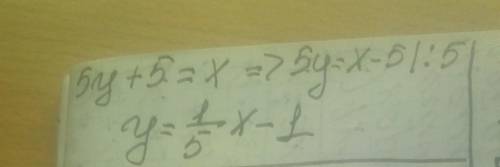 5y + 5 = x => 5y = x - 5 | : 5
y = 1/5 x - 1